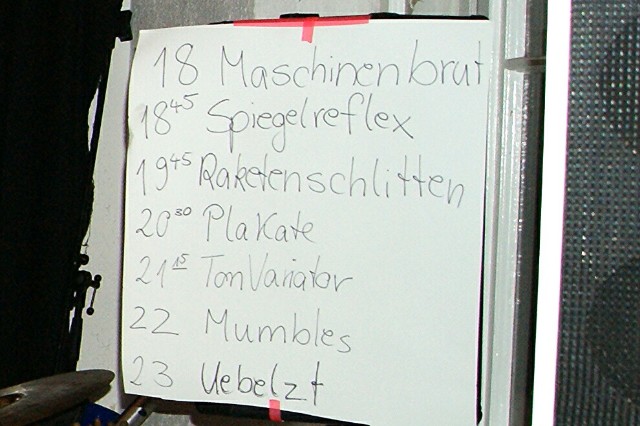 18 Maschinenbrut
18 45 Spiegelreflex
19 45 Raketenschlitten
20 30 Plakate
21 15 TonVariator
22 Mumbles
23 Uebelzt